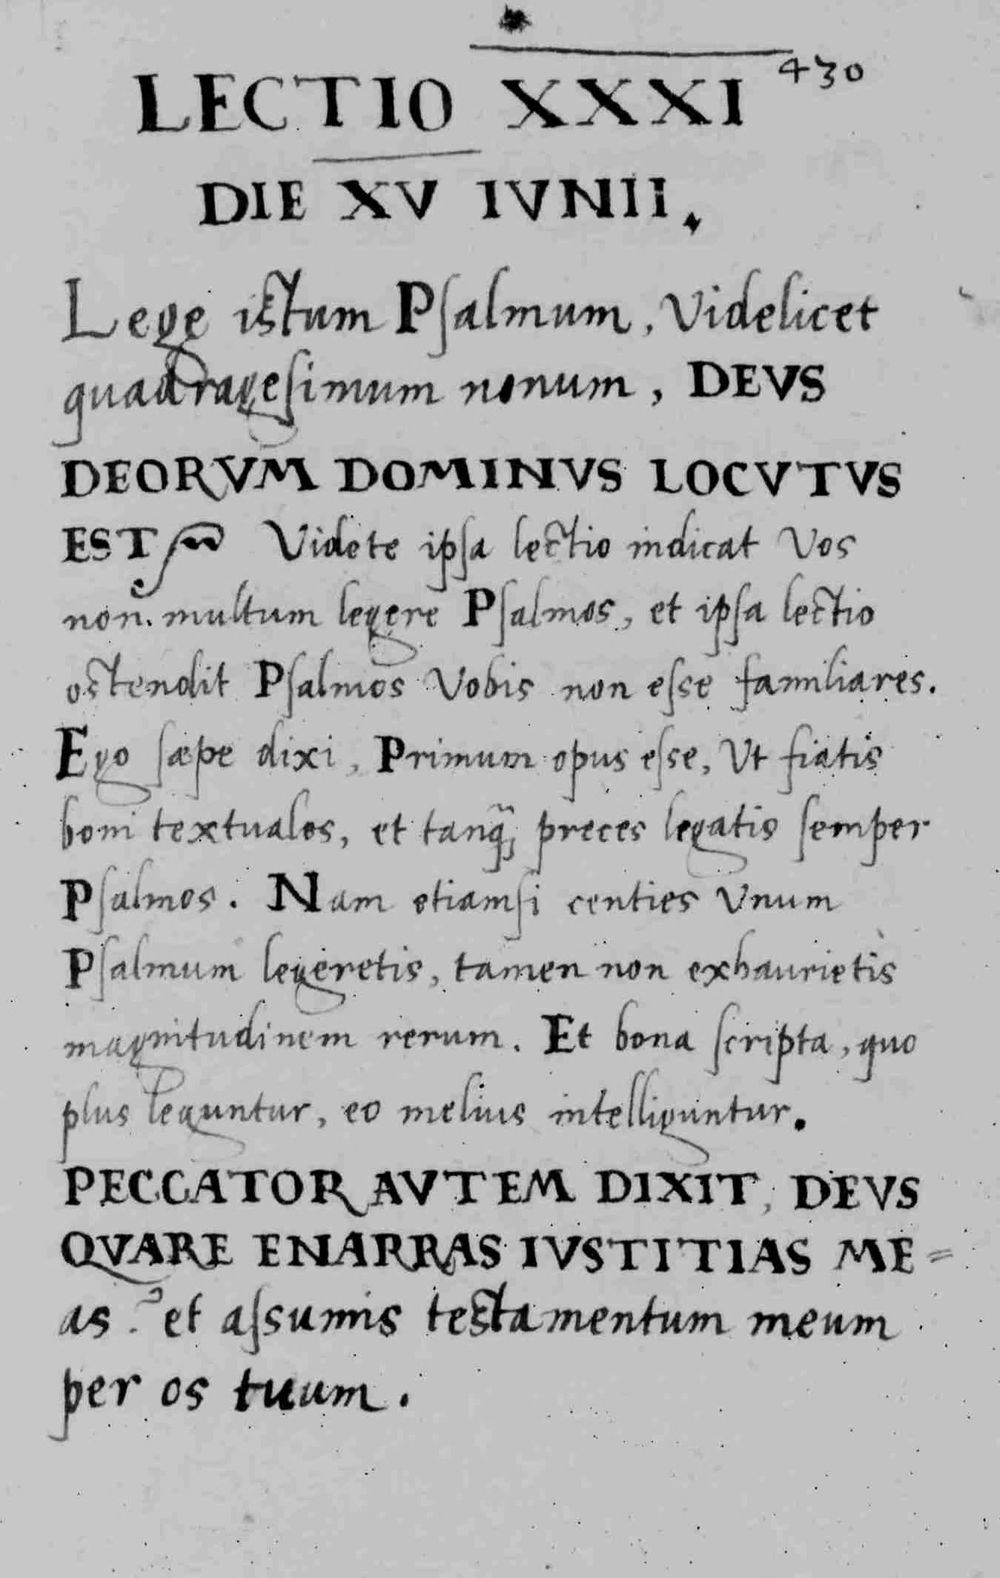 430
LECTIO XXXI
DIE XV IVNII.
Lege istum Psalmum, Videlicet
quadragesimum nonum, DEVS
DEORVM DOMINVS LOCVTVS
EST Videte ipsa lectio indicat Vos
non multum legere Psalmos, et ipsa lectio
ostendit Psalmos Vobis non esse familiares.
Ego sæpe dixi, Primum opus esse, Ut fiatis
boni textuales, et tanq̃, preces legatis semper
Psalmos. Nam etiamsi centies Vnum
Psalmum legeretis, tamen non exhaurietis
magnitudinem rerum. Et bona scripta, quo
plus leguntur, eo melius intelliguntur.
PECCATORI AVTEM DIXIT, DEVS
QVARE ENARRAS IVSTITIAS ME=
as? et assumis testamentum meum
per os tuum.